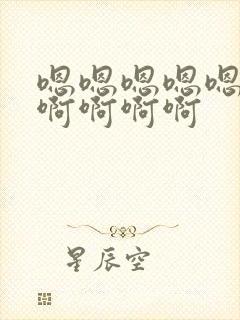 嗯嗯嗯嗯嗯
啊啊啊啊
星辰空